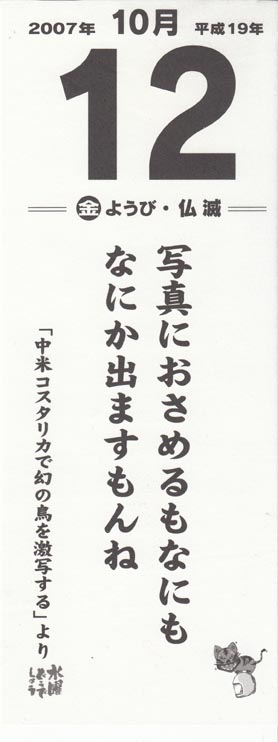 2007年 10月 平成19年
12
金ようび・仏滅
写真におさめるもなにも
なにか出ますもんね
「中米コスタリカで幻の鳥を激写する」より
水曜
どうで
しょう